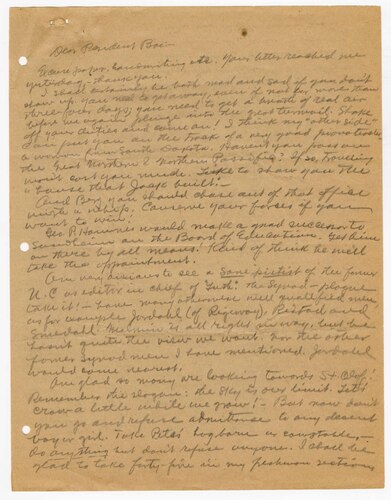 Dear President Boe:—
Excuse paper, handwriting etc. Your letter reached me
yesterday — thank you.
I shall certainly be both mad and sad if you don't
show up. You need to get away, even if not for more than
three four days; you need to get a breath of real air
before you again plunge into the next turmoil. Shake
off your duties and come on! I think my "other side"
can put you on the track of a very good
woman from South Dakota. Haven't you pass on
the Great Northern & Northern Pacific? If so, traveling
won't cost you much. I'd like to show you the
"house that Jack built."
And Boy you should chase out of that office
with a whip. Conserve your forces if you
want to win.
Geo. P. Homnes would make a good successor to
on the Board of Education. Get him
in there by all means! Kind of think he will
take the appointment.
Am very anxious to see a sane pietist of the former
U.C. as editor in chief of Luth. The Synod — plague
take it! — have many otherwise well qualified men
as for example Jordahl (of Ridgeway), Ristad and
Smedal. is all right in way, but he
hasn't quite the view we want. Nor the other
former Synod men I have mentioned. Jordahl
would come nearest.
Am glad so many are looking towards St. Olaf.
Remember the slogan: the Sky is our limit. Let's
crow a little while we grow! — But now don't
you go and refuse admittance to any decent
boy or girl. Take Bitis' barn as
do anything but don't refuse anyone. I shall be
glad to take forty-five in my freshman sections